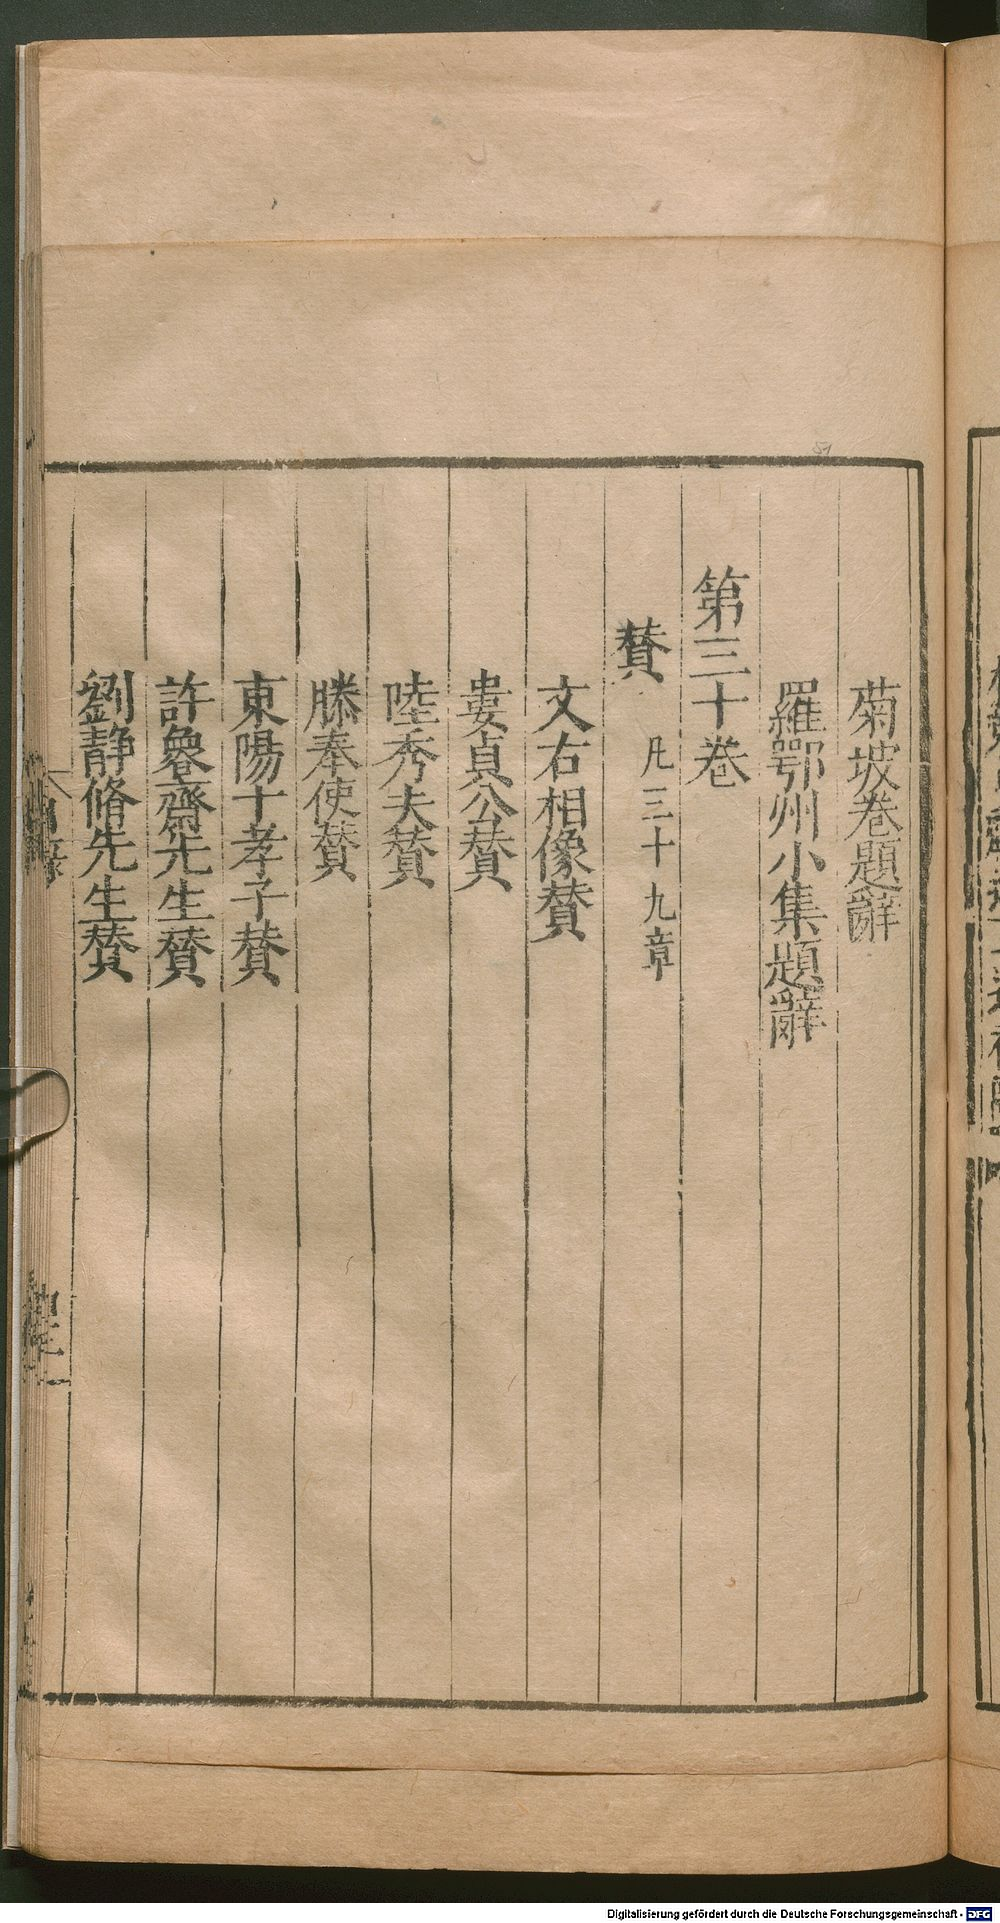 菊坡卷題辭
羅鄂州小集題辭
第三十卷
賛 凡三十九章
文右相像賛
婁貞公賛
陸秀夫賛
滕奉使賛
東陽十孝子賛
許魯齋先生賛
劉静脩先生賛
目錄
Digitalisierung gefördert durch die Deutsche Forschungsgemeinschaft - DFG